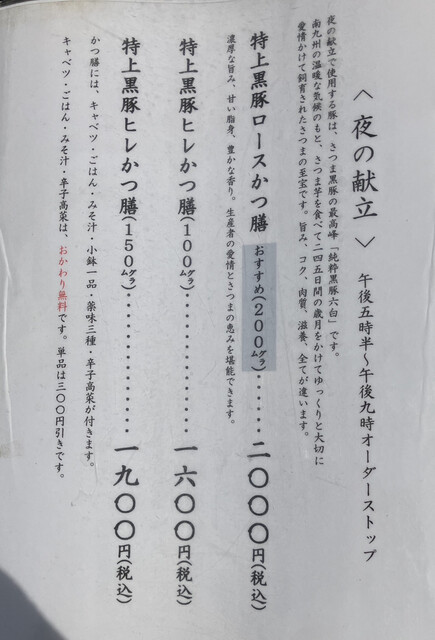 〈 夜の献立 〉 午後五時半〜午後九時オーダーストップ
夜の献立で使用する豚は、さつま黒豚の最高峰「純粋黒豚六白」です。
南九州の温暖な気候のもと、さつま芋を食べて二四五日間の歳月をかけてゆっくりと大切に
愛情かけて飼育されたさつまの至宝です。旨み、コク、肉質、滋養、全てが違います。
特上黒豚ロースかつ膳 おすすめ(200㌘)・・・・・・二〇〇〇円(税込)
濃厚な旨み、甘い脂身、豊かな香り。生産者の愛情とさつまの恵みを堪能できます。
特上黒豚ヒレかつ膳(100㌘)・・・・・・・・・・・・一六〇〇円(税込)
特上黒豚ヒレかつ膳(150㌘)・・・・・・・・・・・・一九〇〇円(税込)
かつ膳には、キャベツ・ごはん・みそ汁・小鉢一品・薬味三種・辛子高菜が付きます。
キャベツ・ごはん・みそ汁・辛子高菜は、おかわり無料です。単品は三〇〇円引きです。